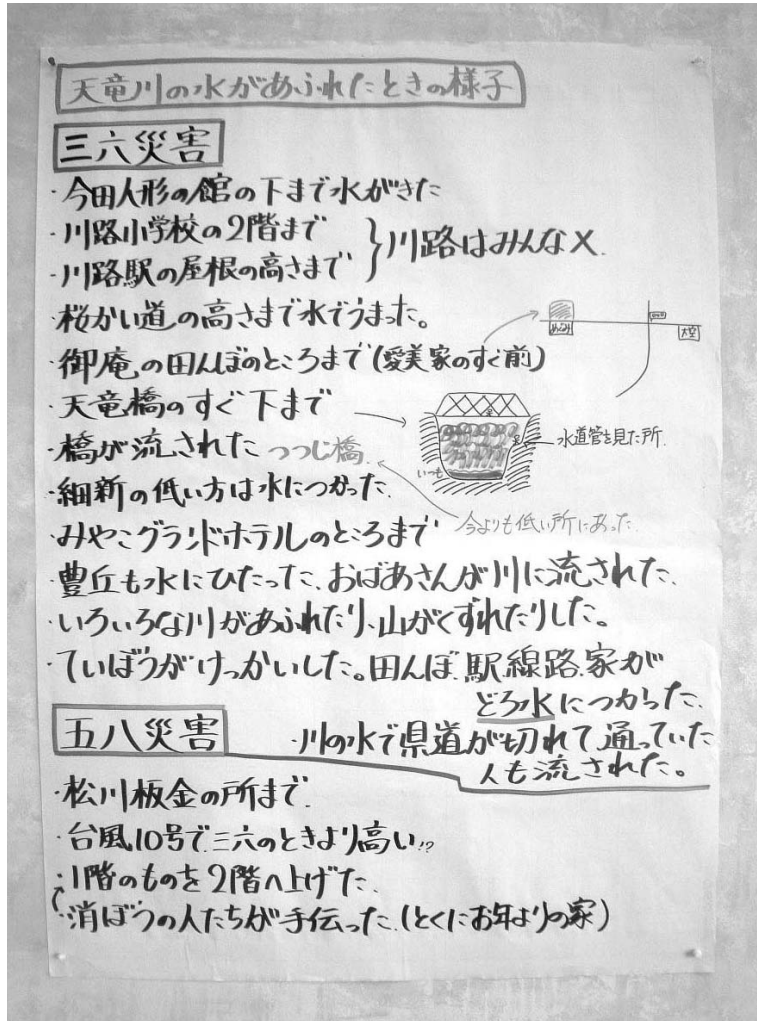 天竜川の水があふれたときの様子
三六災害
・今田人形の館の下まで水がきた
・川路小学校の2階まで
・川路駅の屋根の高さまで
川路はみんな×.
・桜かい道の高さまで水でうまった。
・御庵の田んぼのところまで(愛美家のすぐ前)
めぐみ
大空
・天竜橋のすぐ下まで
・橋が流された つつじ橋
水道管を見た所.
いつも
・細新の低い方は水につかった.
今よりも低い所にあった.
・みやこグランドホテルのところまで
・豊丘も水にひたった、おばあさんが川に流された.
・いろいろな川があふれたり、山がくずれたりした。
・ていぼうがけっかいした。田んぼ、駅、線路、家が
どろ水につかった.
・川の水で県道が切れて、通っていた
人も流された。
五八災害
・松川板金の所まで.
・台風10号で三六のときより高い!?
・1階のものを2階へ上げた.
・消ぼうの人たちが手伝った.(とくにお年よりの家)